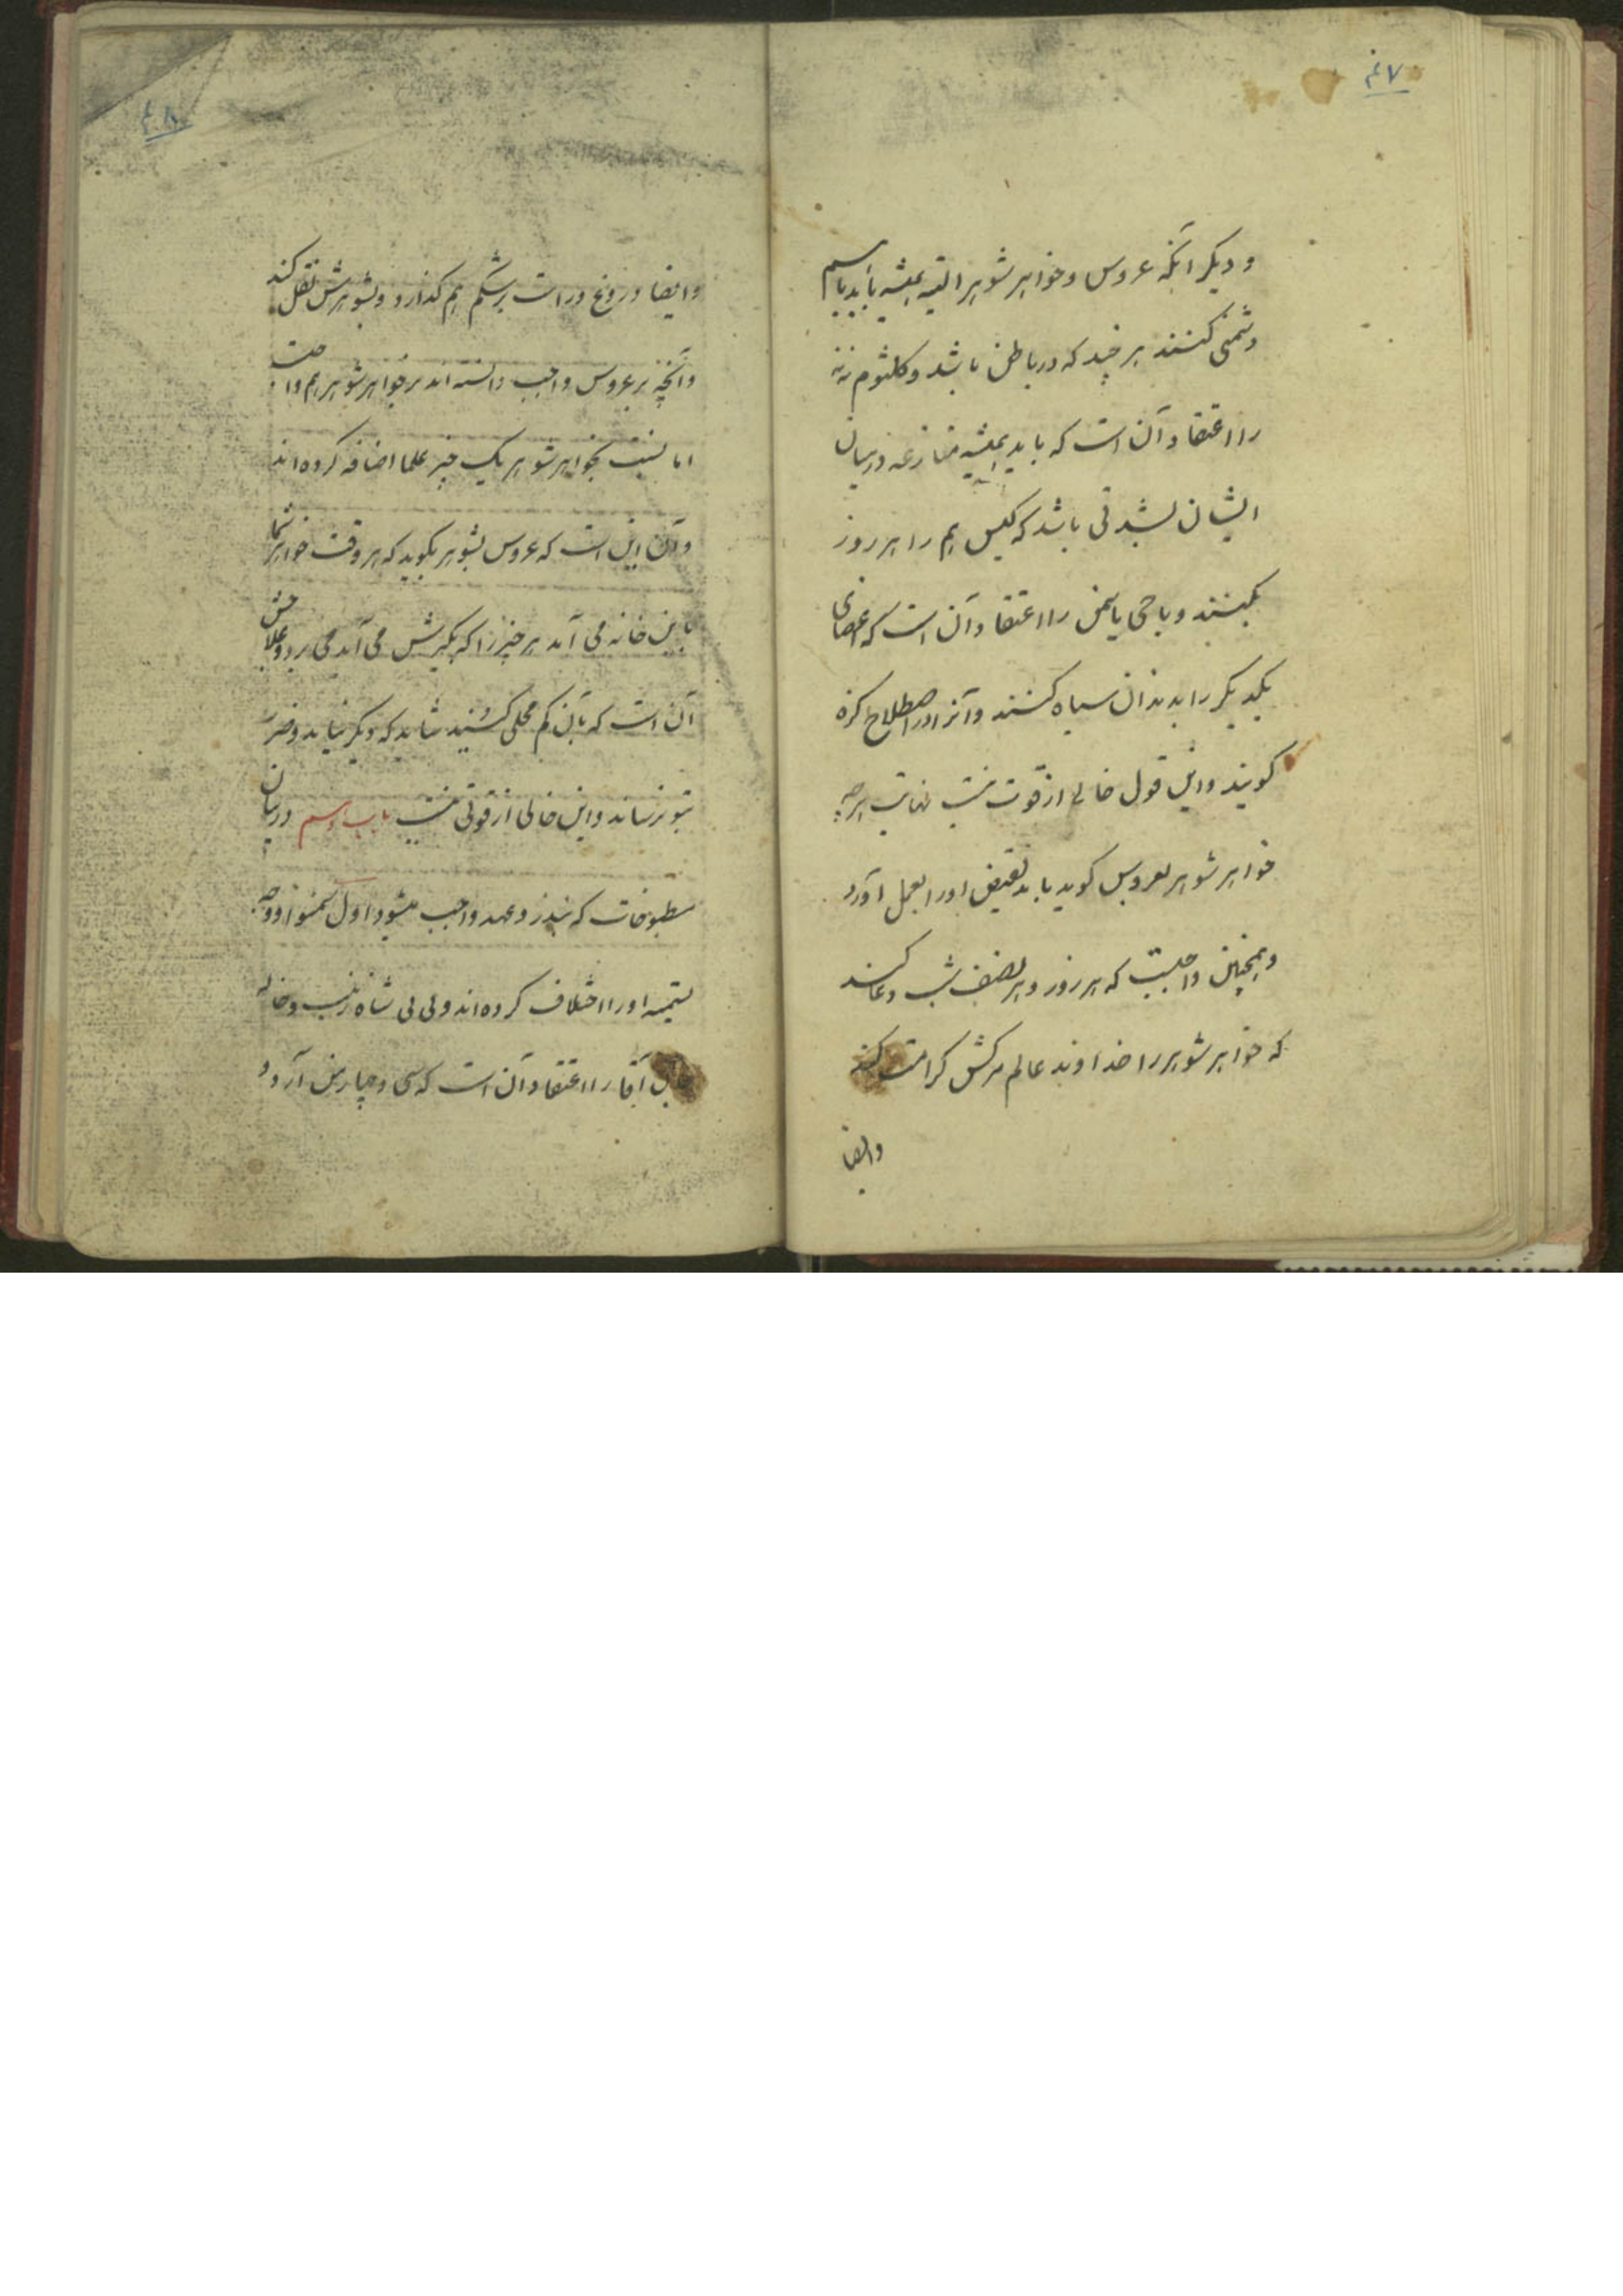 ۴۷
و دیگر آنکه عروس و خواهر شوهر البته همیشه باید باهم
دشمنی کنند هر چند که در باطن باشد و کلثوم ننه
را اعتقاد آن است که باید همیشه منازعه در میان
ایشان بشدتی باشد که گیس هم را هر روز
بکنند و باجی یاسمن را اعتقاد آن است که اعضای
یکدیگر را بدندان سیاه کنند و آنرا در اصطلاح گزه
گویند و این قول خالی از قوت نیست نهایت هرچه
خواهر شوهر بعروس گوید باید نقیض او را بعمل آورد
و همچنین واجبست که هر روز و هر نصف شب دعا کند
که خواهر شوهر را خداوند عالم مرگش کرامت کند
وایضا
۴۸
وایضا دروغ و راست بر شکم هم گذارد و بشوهرش نقل کند
و آنچه بر عروس واجب دانسته اند بر خواهر شوهر هم واجبست
اما نسبت بخواهر شوهر یک چیز علما اضافه کرده اند
و آن این است که عروس بشوهر بگوید که هر وقت خواهر شما
باین خانه می آید هر چیز را که گیرش می آید می برد و علاجش
آن است که بآن کم محلی کنید شاید که دیگر نیاید و ضرر
بتو نرساند و این خالی از قوتی نیست باب دهم در بیان
مطبوخات که بنذر و عهد واجب میشود اول سمنو و وجه
تسمیه او را اختلاف کرده اند و بی بی شاه زینب و خاله
جان آقا را اعتقاد آن است که سی و چهار من آرد و